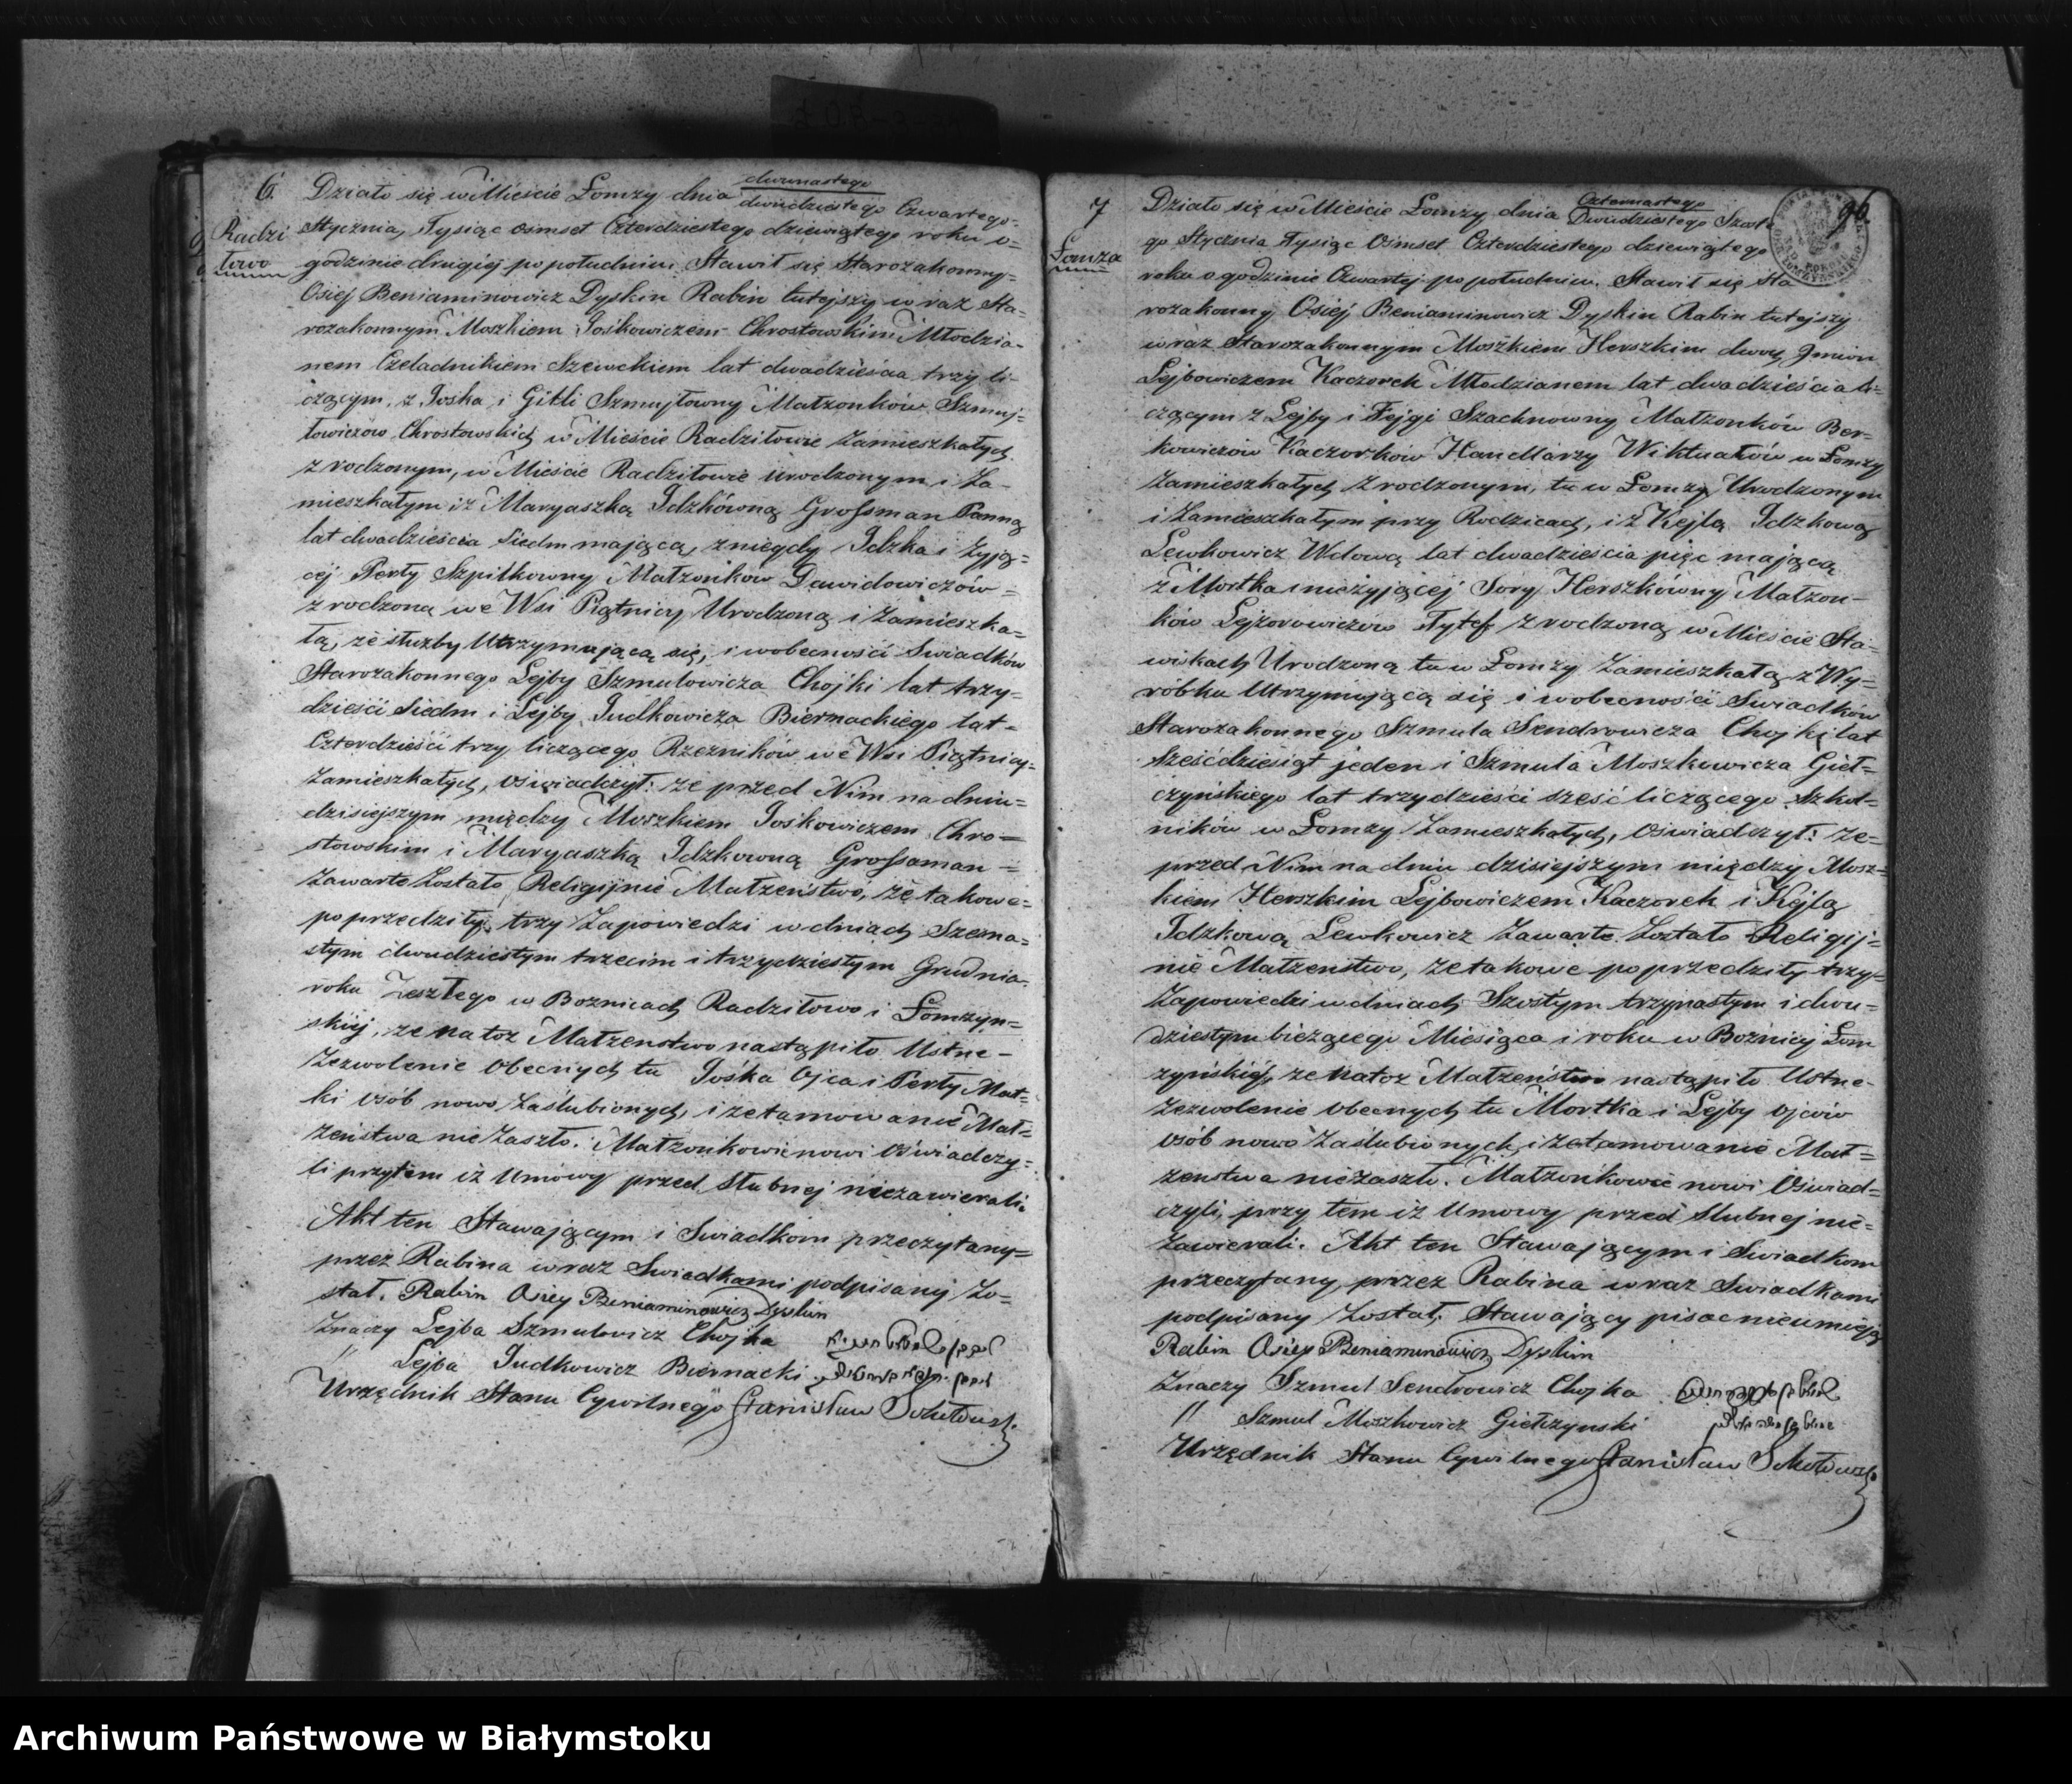 6.
Radzi
łowo
Działo się w Mieście Łomży dnia dwunastego
dwudziestego Czwartego-
Stycznia, Tysiąc ośmset Czterdziestego dziewiątego roku o=
godzinie drugiéj po południu. Stawił się Starozakonny-
Osiej Beniaminowicz Dyskin Rabin tutejszy wraz Sta-
rozakonnym Moszkiem Joskowiczem Chrostowskim Młodzia-
nem Czeladnikiem Szewckiem lat dwadzieścia trzy li-
czącym, z Joska i Gitli Szmujłowny Małżonków Szmuj-
łowiczów Chrostowskich w Mieście Radziłowie Zamieszkałych
zrodzonym, w Mieście Radziłowie urodzonym i Za-
mieszkałym i z Maryaszką Idzkówną Grossman Panną
lat dwadzieścia Siedm mającą, z niegdy Idzka i żyją=
céj Perły Szpilkowny Małżonków Dawidowiczów=
zrodzoną we Wsi Piątnicy Urodzoną i Zamieszka=
łą, ze służby Utrzymującą się, i w obecności Świadków
Starozakonnego Lejby Szmulowicza Chojki lat trzy-
dzieści Siedm i Lejby Judkowicza Biernackiego lat-
Czterdzieści trzy liczącego Rzezników we Wsi Piątnicy-
Zamieszkałych, oświadczył: że przed Nim na dniu=
dzisiejszym między Moszkiem Joskowiczem Chro=
stowskim i Maryaszką Idzkowną Grossman=
Zawarte Zostało Religijnie Małżeństwo, że takowe=
poprzedziły trzy Zapowiedzi w dniach Szesna=
stym dwudziestym trzecim i trzydziestym Grudnia
roku Zeszłego w Boznicach Radziłowo i Łomżyn=
skiéj, że na toż Małżeństwo nastąpiło Ustne-
Zezwolenie Obecnych tu Joska Ojca i Perły Mat=
ki osób nowo Zaślubionych, i że tamowanie Mał=
żeństwa nie Zaszło. Małżonkowie nowi Oświadczy=
li przytém iż Umowy przed Ślubnej niezawierali.
Akt ten Stawającym i Świadkom przeczytany=
przez Rabina wraz Świadkami podpisany Zo=
stał. Rabin Osiey Beniaminowicz Dyskin
Znaczy Lejba Szmulowicz Chojka
// Lejba Judkowicz Biernacki
Urzędnik Stanu Cywilnego Stanisław Sokołowski
96
7
Łomża
Działo się w Mieście Łomży dnia Czternastego
Dwudziestego Szóste
go Stycznia Tysiąc Ośmset Czterdziestego dziewiątego
roku o godzinie Czwartej po południu. Stawił się Sta
rozakonny Osiéj Beniaminowicz Dyskin Rabin tutejszy
wraz Starozakonnym Moszkiem Herszkim dwoyg Jmion
Lejbowiczem Kaczorek Młodzianem lat dwadzieścia li=
czącym z Lejby i Fejgi Szachnowny Małżonków Ber-
kowiczów Kaczorków Handlarzy Wiktuałów w Łomży
Zamieszkałych Zrodzonym, tu w Łomży Urodzonym
i Zamieszkałym przy Rodzicach, i z Kejlą Idzkową
Lewkowicz Wdową lat dwadzieścia pięc mającą
z Mortka i nieżyjącej Sory Herszkówny Małżon-
ków Lejzorowiczów zrodzoną w Mieście Sta-
wiskach Urodzoną tu w Łomży Zamieszkałą z Wy=
róbku Utrzymującą się i w obecności Świadków
Starozakonnego Szmula Sendrowicza Chojki lat
Sześćdziesiąt jeden i Szmula Moszkowicza Gieł=
czyńskiego lat trzydzieści sześć liczącego Szkol=
ników w Łomży Zamieszkałych, Oświadczył: że-
przed Nim na dniu dzisiejszym między Mosz=
kiem Herszkim Lejbowiczem Kaczorek i Kejlą
Idzkową Lewkowicz Zawarte Zostało Religij=
nie Małżeństwo, że takowe poprzedziły trzy-
Zapowiedzi w dniach Szóstym trzynastym i dwu=
dziestym bieżącego Miesiąca i roku w Boźnicy Łom
żyńskiéj, że na toż Małżeństwo nastąpiło Ustne-
Zezwolenie obecnych tu Mortka i Lejby ojców
osób nowo Zaślubionych, i że tamowanie Mał=
żeństwa niezaszło. Małżonkowie nowi Oświad=
czyli, przy tem iż Umowy przed Slubnej nie-
Zawierali. Akt ten Stawającym i Świadkom
przeczytany, przez Rabina wraz Świadkami
podpisany Został, Stawający pisać nieumieją
Rabin Osiey Beniaminowicz Dyskin
Znaczy Szmul Sendrowicz Chojka
// Szmul Moszkowicz Giełczynski
Urzędnik Stanu Cywilnego Stanisław Sokołowski
Archiwum Państwowe w Białymstoku